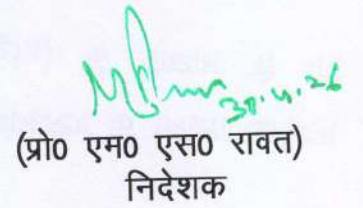 30.4.26
(प्रो0 एम0 एस0 रावत)
निदेशक